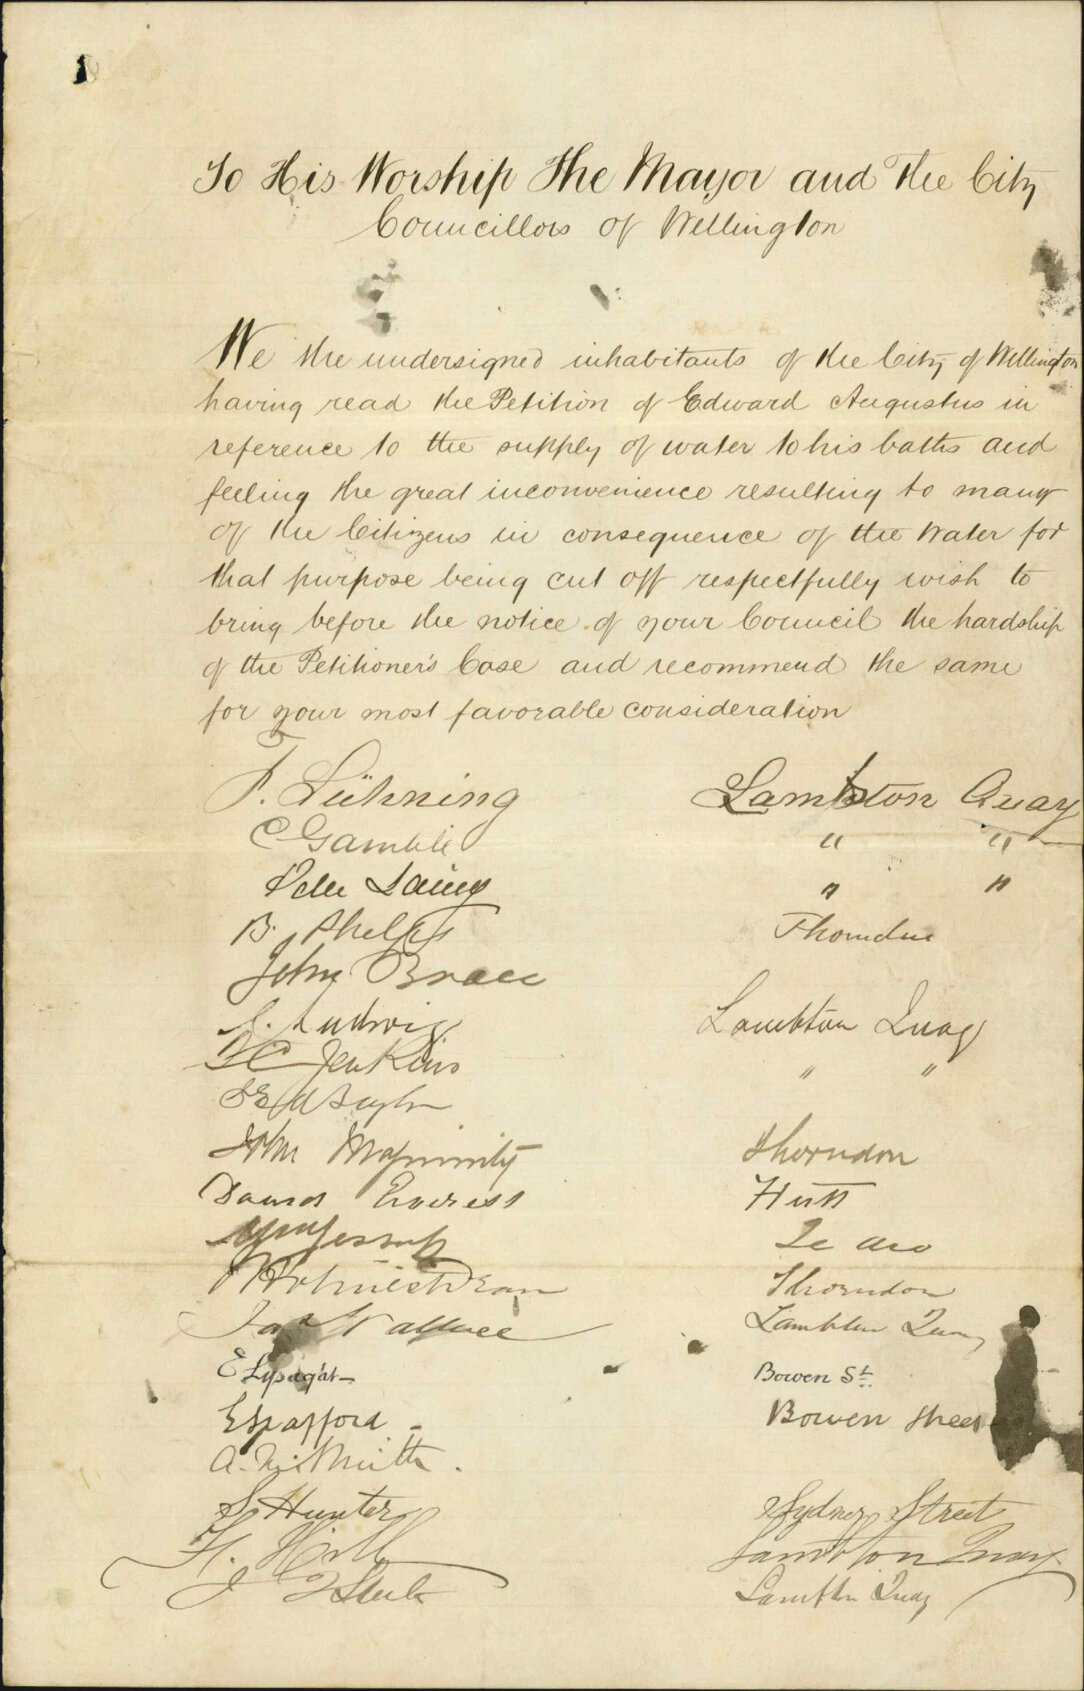 To His Worship The Mayor and The City
Councillors of Wellington
We the undersigned inhabitants of the City of Wellington
having read the Petition of Edward Augustus in
reference to the supply of water to his baths and
feeling the great inconvenience resulting to many
of the Citizens in consequence of the Water for
that purpose being cut off respectfully wish to
bring before the notice of your Council the hardship
of the Petitioner's Case and recommend the same
for your most favorable consideration
F. Lühning Lambton Quay
C Gamble " "
Peter Laing " "
B. Phelps Thorndon
John Brace
Ludwig Lambton Quay
Jenkins " "
John Thorndon
David Everess Hutt
Te Aro
Thorndon
Jas Wallace Lambton Quay
E Lysaght Bowen St
E Spafford Bowen Street
A. Smith
S Hunter Sydney Street
H. Hill Lambton Quay
J Lambton Quay